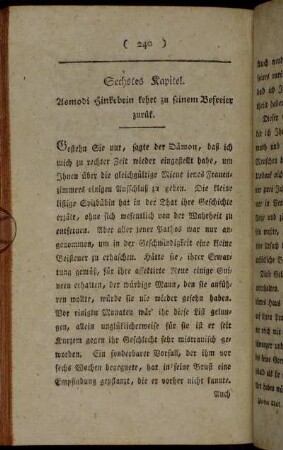 ( 240 )
Sechstes Kapitel.
Asmodi Hinkebein kehrt zu seinem Befreier
zurük.
Gestehn Sie nur, sagte der Dämon, daß ich
mich zu rechter Zeit wieder eingestellt habe, um
Ihnen über die gleichgültige Miene jenes Frauen-
zimmers einigen Aufschluß zu geben. Die kleine
listige Spizbübin hat in der That ihre Geschichte
erzält, ohne sich wesentlich von der Wahrheit zu
entfernen. Aber aller jener Pathos war nur an-
genommen, um in der Geschwindigkeit eine kleine
Beisteuer zu erhaschen. Hätte sie, ihrer Erwar-
tung gemäß, für ihre affektirte Reue einige Gui-
neen erhalten, der würdige Mann, den sie anfüh-
ren wollte, würde sie nie wieder gesehen haben.
Vor einigen Monaten wär' ihr diese List gelun-
gen, allein unglüklicherweise für sie ist er seit
Kurzem gegen ihr Geschlecht sehr mistrauisch ge-
worden. Ein sonderbarer Vorfall, der ihm vor
sechs Wochen begegnete, hat in seine Brust eine
Empfindung gepflanzt, die er vorher nicht kannte.
Auch